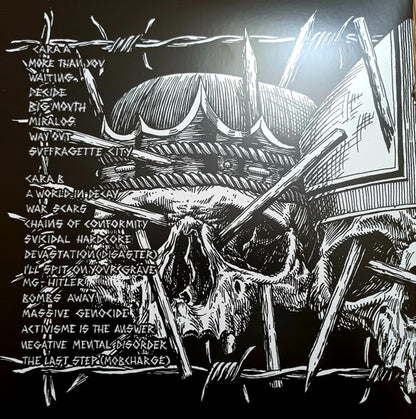 CARA A
MORE THAN YOU
WAITING
DECIDE
BIG MOUTH
MIRALOS
WAY OUT
SUFFRAGETTE CITY
CARA B
A WORLD IN DECAY
WAR SCARS
CHAINS OF CONFORMITY
SUICIDAL HARDCORE
DEVASTATION (DISASTER)
I'LL SPIT ON YOUR GRAVE
MG-HITLER
BOMBS AWAY
MASSIVE GENOCIDE
ACTIVISME IS THE ANSWER
NEGATIVE MENTAL DISORDER
THE LAST STEP (MOBCHARGE)